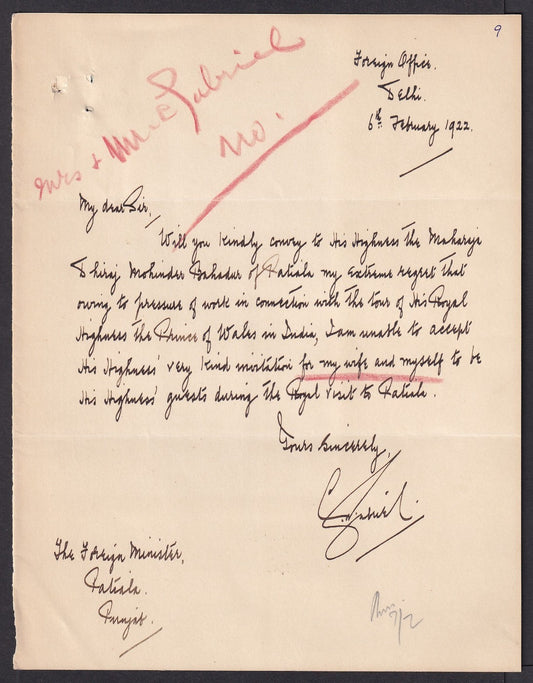 9
Foreign Office.
Delhi.
6th February 1922.
Mrs & Mr C Gabriel
No.
My dear Sir,
Will you kindly convey to His Highness the Maharaja
Dhiraj Mohinder Bahadur of Patiala my extreme regret that
owing to pressure of work in connection with the tour of His Royal
Highness the Prince of Wales in India, I am unable to accept
His Highness' very kind invitation for my wife and myself to be
His Highness' guests during the Royal visit to Patiala.
Yours sincerely,
C. Gabriel.
The Foreign Minister,
Patiala.
Punjab.
7/2